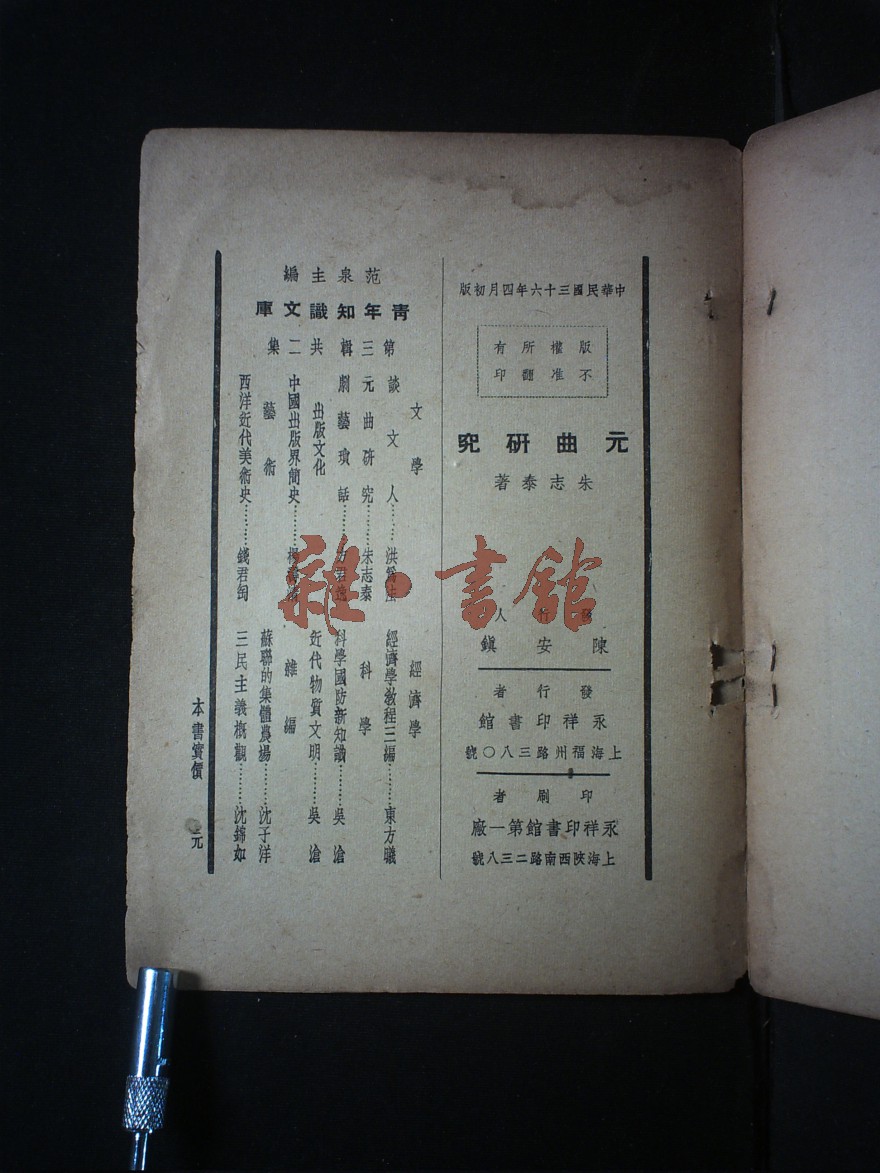 中華民國三十六年四月初版
版權所有
不准翻印
元曲研究
朱志泰著
發行人
陳安鎮
發行者
永祥印書館
上海福州路三八〇號
印刷者
永祥印書館第一廠
上海陝西南路二三八號
范泉主編
青年知識文庫
第三輯共二集
文學
談文人……洪爲法
元曲研究………朱志泰
劇藝瑣話……
出版文化
中國出版界簡史……楊
藝術
西洋近代美術史………錢君匋
經濟學
經濟學教程三編………東方曦
科學
科學國防新知識……吳滄
近代物質文明……吳滄
雜編
蘇聯的集體農場………沈子洋
三民主義概觀………沈錦如
本書實價 元
雜·書館